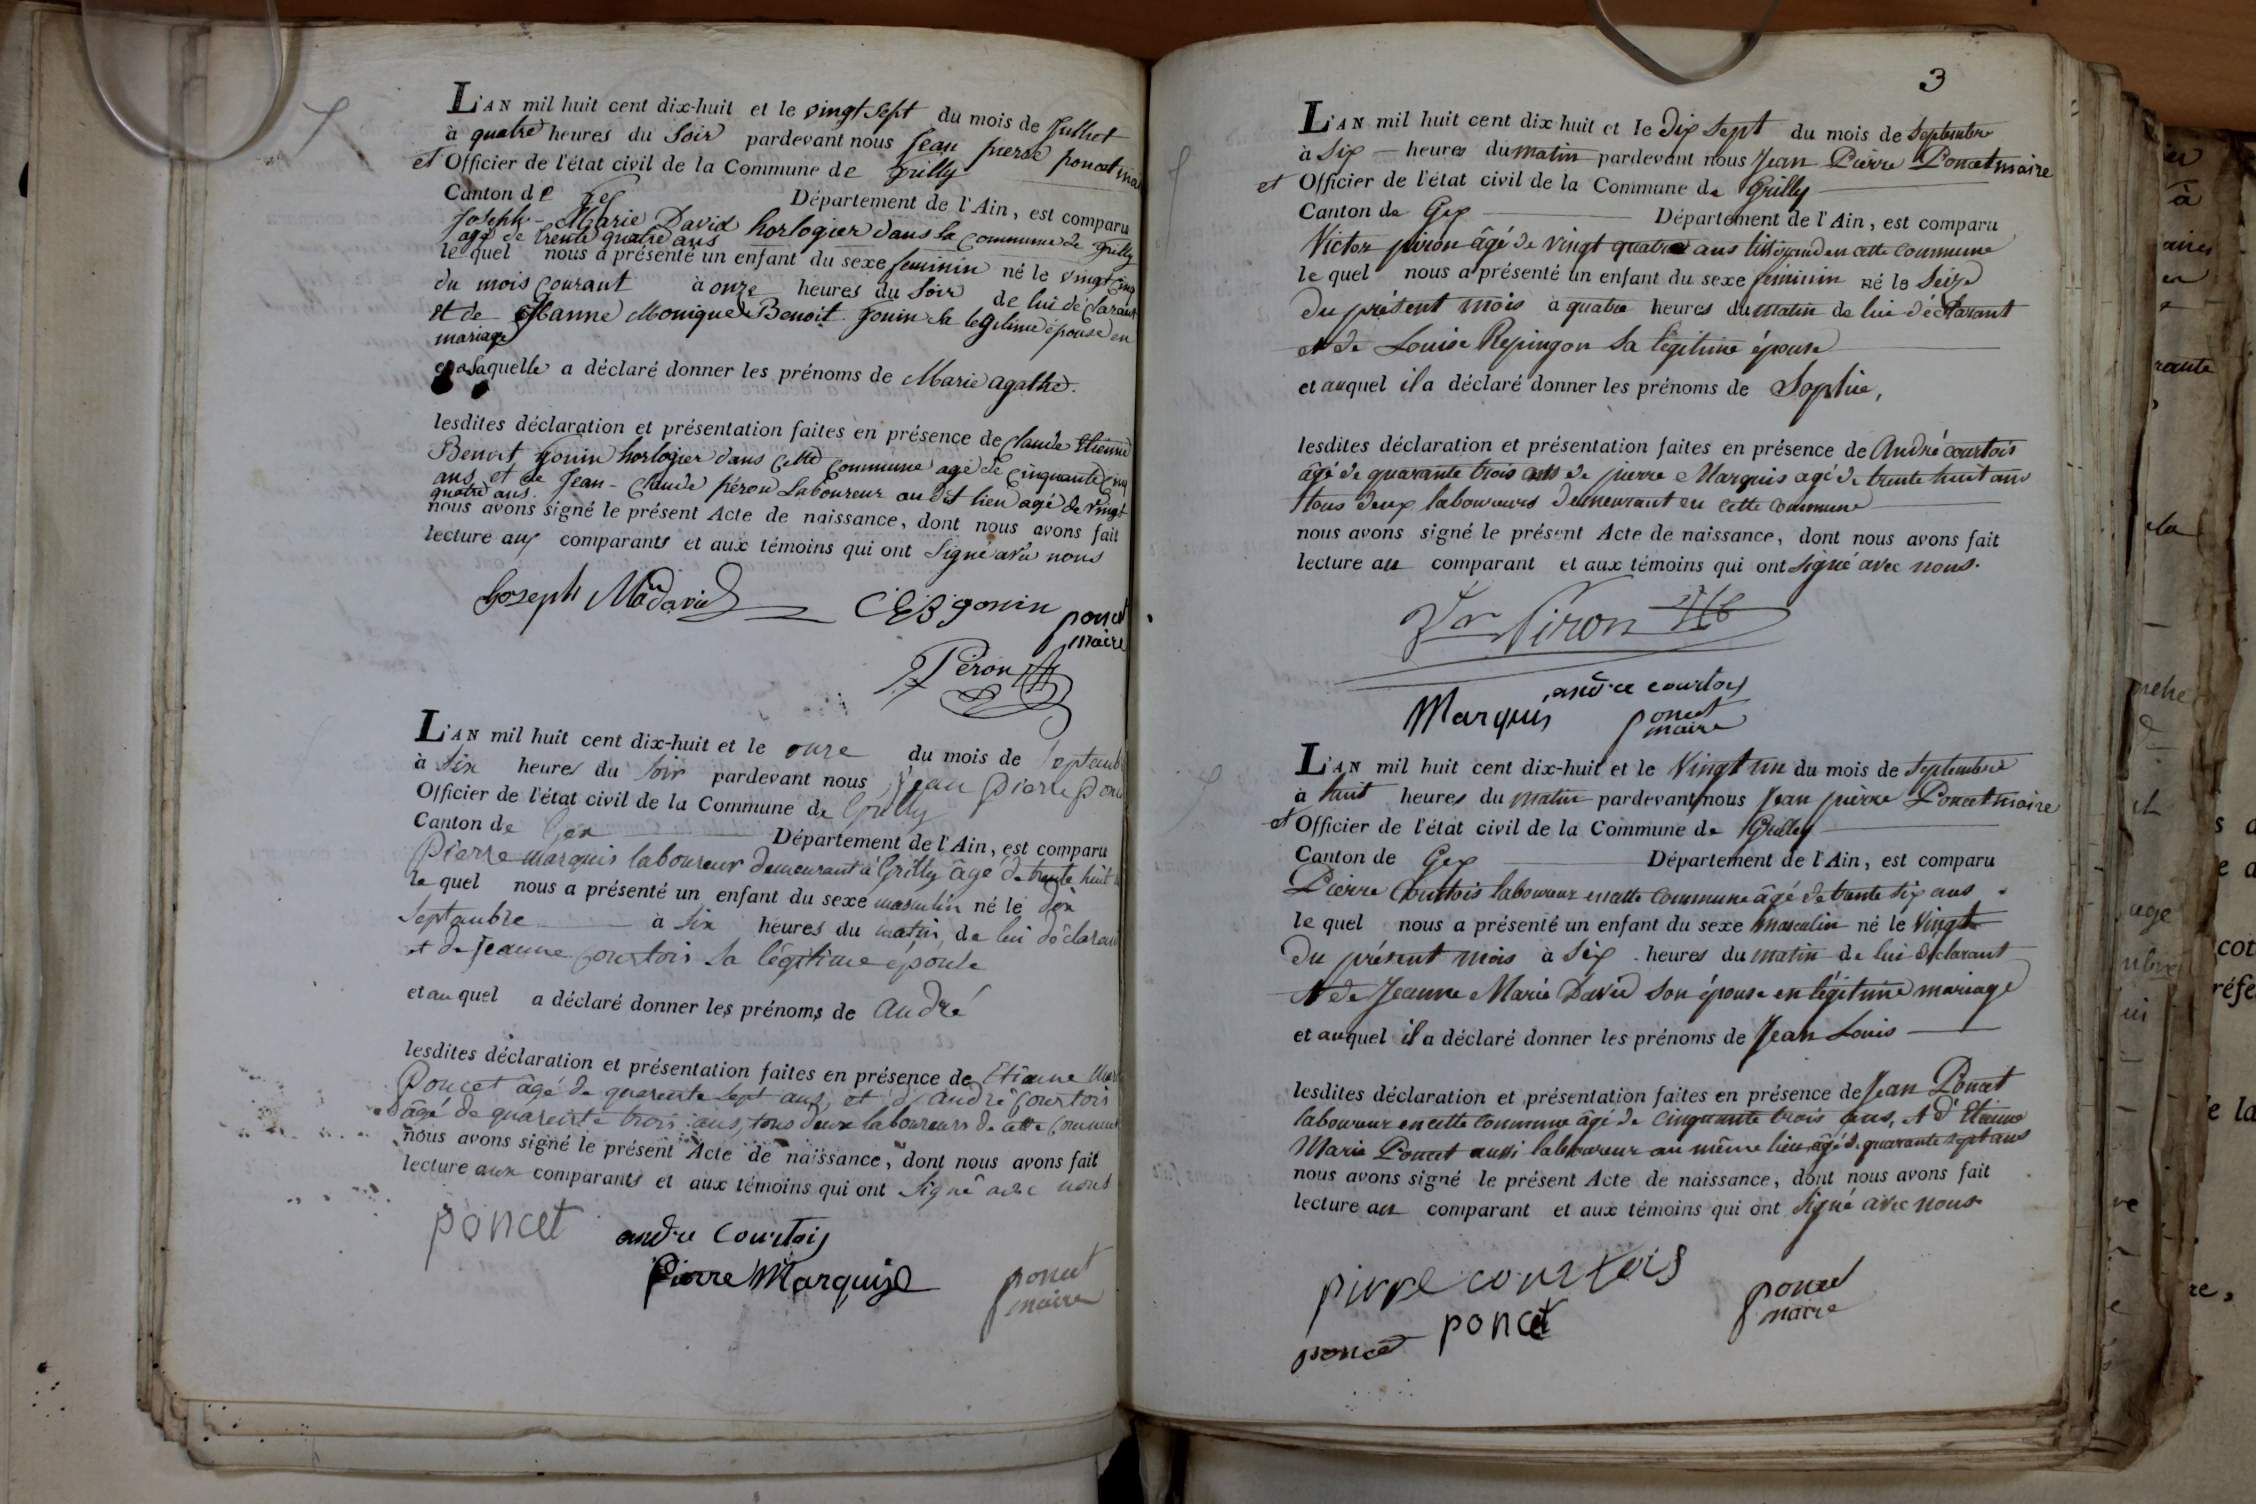 L'AN mil huit cent dix-huit et le vingt sept du mois de Juillet
à quatre heures du Soir pardevant nous Jean pierre poncet mai
et Officier de l'état civil de la Commune de Grilly
Canton de Gex Département de l'Ain, est comparu
Joseph-Marie David horlogier dans la commune de Grilly
agé de trente quatre ans
le quel nous a présenté un enfant du sexe feminin né le vingt cinq
du mois courant à onze heures du Soir de lui déclarant
et de Jeanne Monique Benoit Gonin Sa legitime épouse en
mariage
et a laquelle a déclaré donner les prénoms de Marie agathe.
lesdites déclaration et présentation faites en présence de Claude Etienne
Benoit Gonin horlogier dans cette commune agé de cinquante cinq
ans et de Jean-Claude péron Laboureur au dit lieu agé de vingt
quatre ans.
nous avons signé le présent Acte de naissance, dont nous avons fait
lecture aux comparants et aux témoins qui ont Signé avec nous
Joseph M David C E B gonin poncet
maire
Péron
L'AN mil huit cent dix-huit et le onze du mois de Septemb
à Six heures du Soir pardevant nous Jean Pierre Ponc
Officier de l'état civil de la Commune de Grilly
Canton de Gex Département de l'Ain, est comparu
Pierre marquis laboureur demeurant à Grilly âgé de trente huit
le quel nous a présenté un enfant du sexe masculin né le dix
Septembre à Six heures du matin, de lui déclarant
et de Jeanne Courtois Sa légitime épouse
et au quel a déclaré donner les prénoms de André
lesdites déclaration et présentation faites en présence de Etienne Mari
Poncet âgé de quarente sept ans, et d'André Courtois
âgé de quarente trois ans, tous deux laboureurs de cette Commun
nous avons signé le présent Acte de naissance, dont nous avons fait
lecture aux comparants et aux témoins qui ont Signé avec nous
poncet andre Courtois
Pierre Marquis poncet
maire
3
L'AN mil huit cent dix-huit et le Dix Sept du mois de Septembre
à Six heures du matin pardevant nous Jean Pierre Poncet maire
et Officier de l'état civil de la Commune de Grilly
Canton de Gex Département de l'Ain, est comparu
Victor piron âgé de vingt quatre ans tisserand en cette commune
le quel nous a présenté un enfant du sexe féminin né le Seize
du présent mois à quatre heures du matin de lui déclarant
et de Louise Repingon Sa légitime épouse
et auquel il a déclaré donner les prénoms de Sophie,
lesdites déclaration et présentation faites en présence de André courtois
âgé de quarante trois ans de pierre Marquis agé de trente huit ans
tous deux laboureurs demeurant en cette commune
nous avons signé le présent Acte de naissance, dont nous avons fait
lecture au comparant et aux témoins qui ont signé avec nous.
Vr Piron
andre courtois
Marquis poncet
maire
L'AN mil huit cent dix-huit et le Vingt un du mois de Septembre
à huit heures du matin pardevant nous Jean pierre Poncet maire
et Officier de l'état civil de la Commune de Grilly
Canton de Gex Département de l'Ain, est comparu
Pierre Courtois laboureur en cette commune âgé de trente six ans
le quel nous a présenté un enfant du sexe masculin né le vingt
du présent mois à Six heures du matin de lui déclarant
et de Jeanne Marie David Son épouse en légitime mariage
et auquel il a déclaré donner les prénoms de Jean Louis
lesdites déclaration et présentation faites en présence de Jean Poncet
laboureur en cette commune âgé de cinquante trois ans, et d'Etienne
Marie Poncet aussi laboureur au même lieu âgé de quarante sept ans
nous avons signé le présent Acte de naissance, dont nous avons fait
lecture au comparant et aux témoins qui ont signé avec nous
pierre courtois poncet
maire
poncet poncet